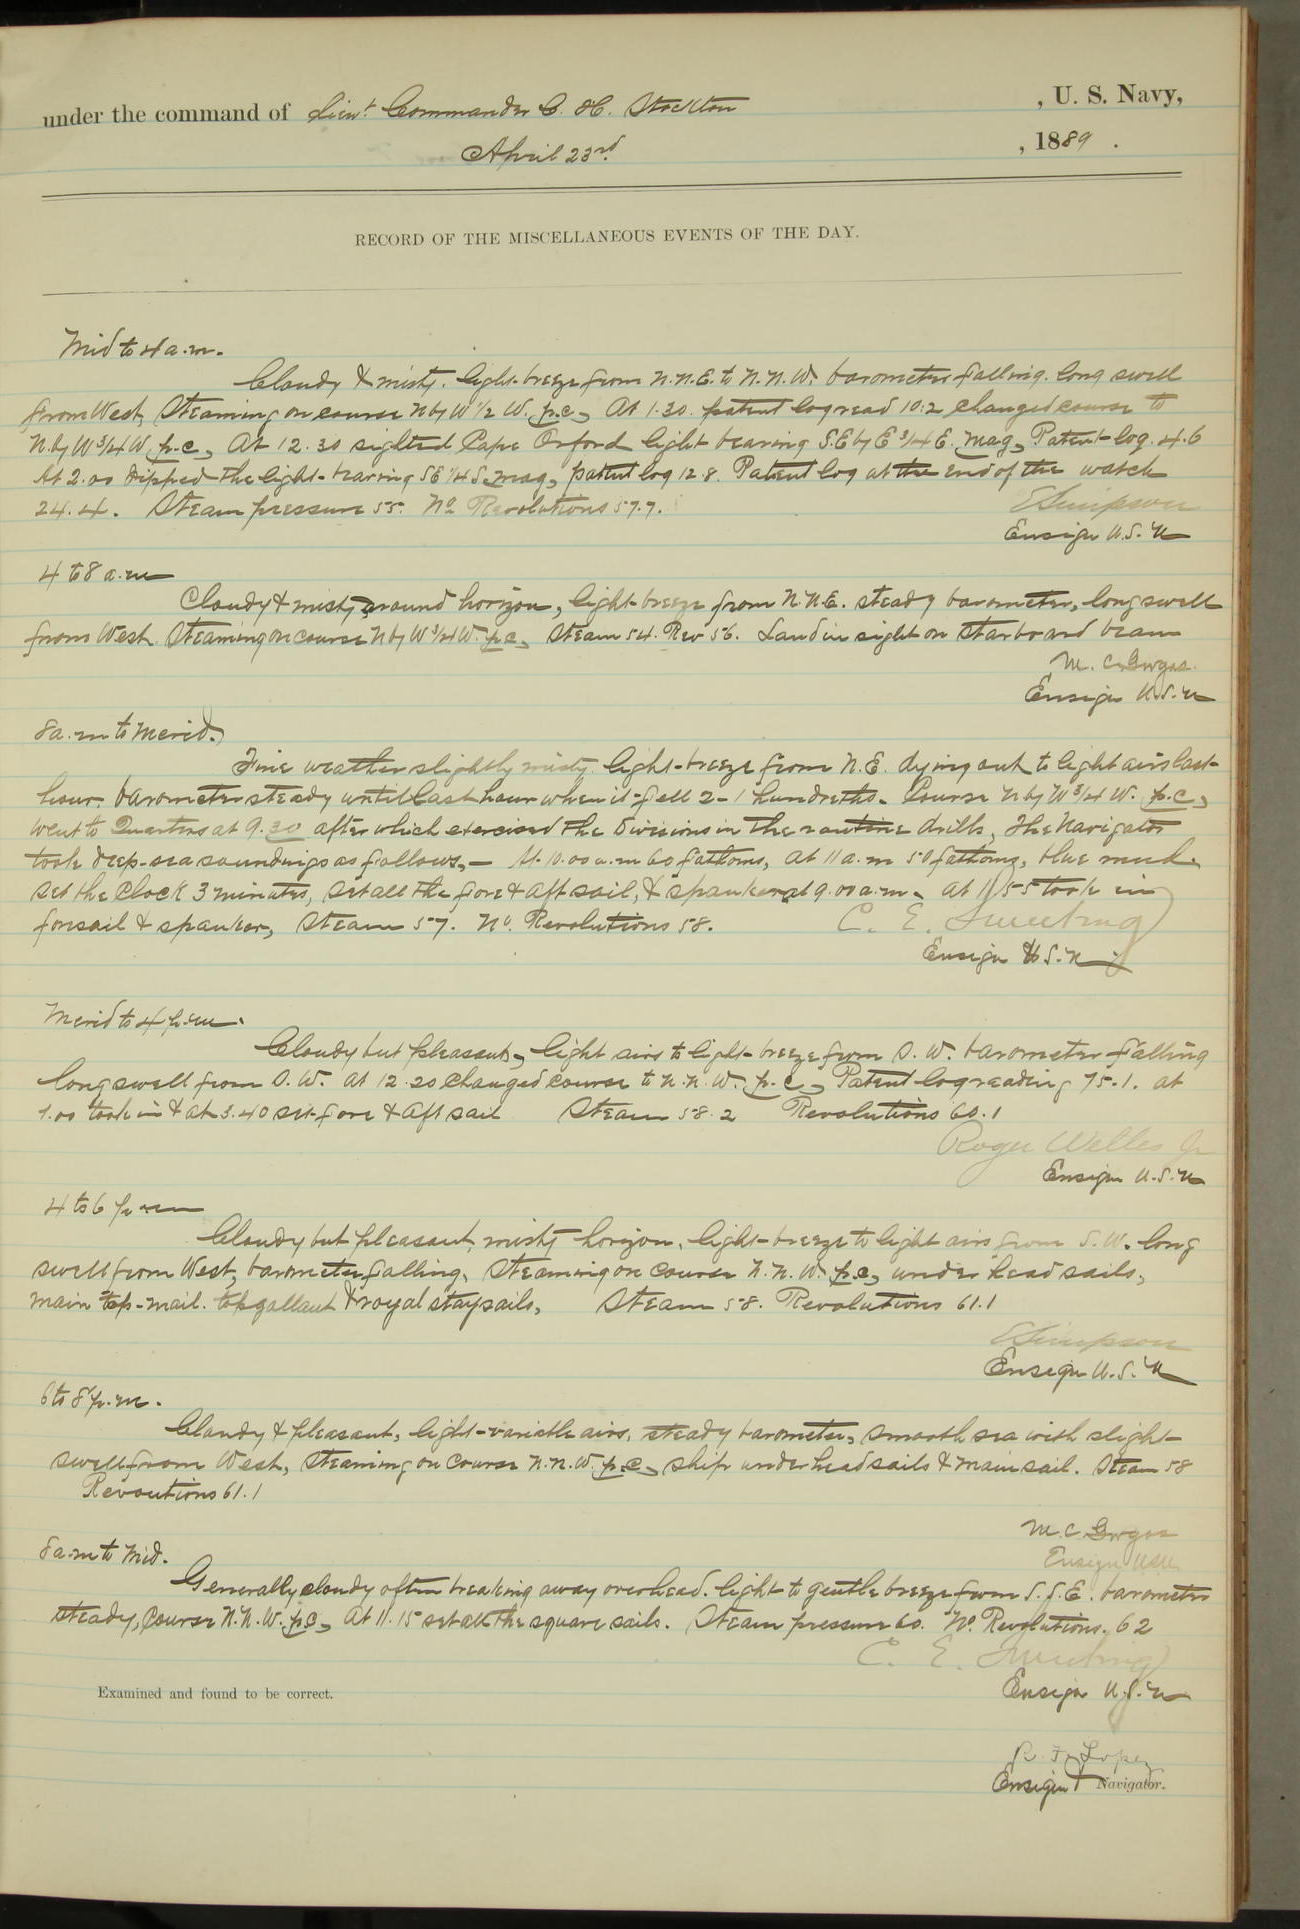 under the command of Lieut. Commander C. H. Stockton , U. S. Navy,
April 23rd. , 1889 .
RECORD OF THE MISCELLANEOUS EVENTS OF THE DAY.
Mid to 4 a.m.
Cloudy & misty. light breeze from N.N.E. to N.N.W. barometer falling. long swell
from West, Steaming on course N by W 1/2 W. p.c., At 1.30. patent log read 10.2 changed course to
N. by W 3/4 W. p.c., At 12.30 sighted Cape Orford light bearing S.E by E 3/4 E. mag, Patent log. 4.6
At 2.00 dipped the light bearing SE 1/4 S. mag, patent log 12.8. Patent log at the end of the watch
24.4. Steam pressure 55. No. Revolutions 57.7.
E Simpson
Ensign U.S.N
4 to 8 a.m
Cloudy & misty around horizon, light breeze from N.N.E. steady barometer, long swell
from West. Steaming on course N by W 3/4 W. p.c., Steam 54. Rev 56. Land in sight on starboard beam
M. C. Gorgas.
Ensign U.S.N
8 a.m to Merid.
Fine weather slightly misty. light breeze from N.E. dying out to light airs last
hour. barometer steady until last hour when it fell 2-1 hundreths. Course N by W 3/4 W. p.c.,
Went to Quarters at 9.30 after which exercised the Divisions in the routine drills, The Navigator
took deep-sea soundings as follows,— At 10.00 a.m 60 fathoms, at 11 a.m 50 fathoms, blue mud.
set the clock 3 minutes, set all the fore & aft sail, & spanker at 9.00 a.m. at 11.55 took in
foresail & spanker, Steam 57. No. Revolutions 58.
C. E. Sweeting
Ensign U.S.N
Merid to 4 p.m.
Cloudy but pleasant, light airs to light breeze from S.W. barometer falling
long swell from S.W. at 12.20 changed course to N.N.W. p.c., Patent log reading 75.1. at
1.00 took in & at 3.40 set fore & aft sail Steam 58.2 Revolutions 60.1
Roger Welles Jr
Ensign U.S.N
4 to 6 p.m
Cloudy but pleasant, misty horizon, light breeze to light airs from S.W. long
swell from West, barometer falling, Steaming on course N.N.W. p.c., under head sails,
main top-mast. topgallant & royal staysails, Steam 58. Revolutions 61.1
E Simpson
Ensign U.S.N
6 to 8 p.m.
Cloudy & pleasant, light variable airs, steady barometer, smooth sea with slight
swell from West, steaming on course N.N.W. p.c., ship under head sails & mainsail. Steam 58
Revoutions 61.1
M.C Gorgas
Ensign USN
8 a.m to Mid.
Generally cloudy often breaking away overhead. light to gentle breeze from S.S.E. barometer
steady, course N.N.W. p.c., At 11.15 set all the square sails. Steam pressure 60. No. Revolutions. 62
C. E. Sweeting
Ensign U.S.N
Examined and found to be correct.
R. F. Lopez
Ensign & Navigator.